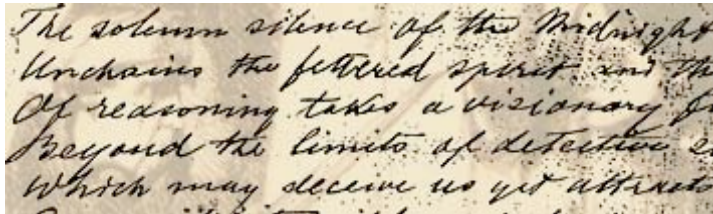 The solemn silence of the Midnight
Unchains the fettered spirit and
Of reasoning takes a visionary
Beyond the limits of detective
Which may deceive us yet attracts